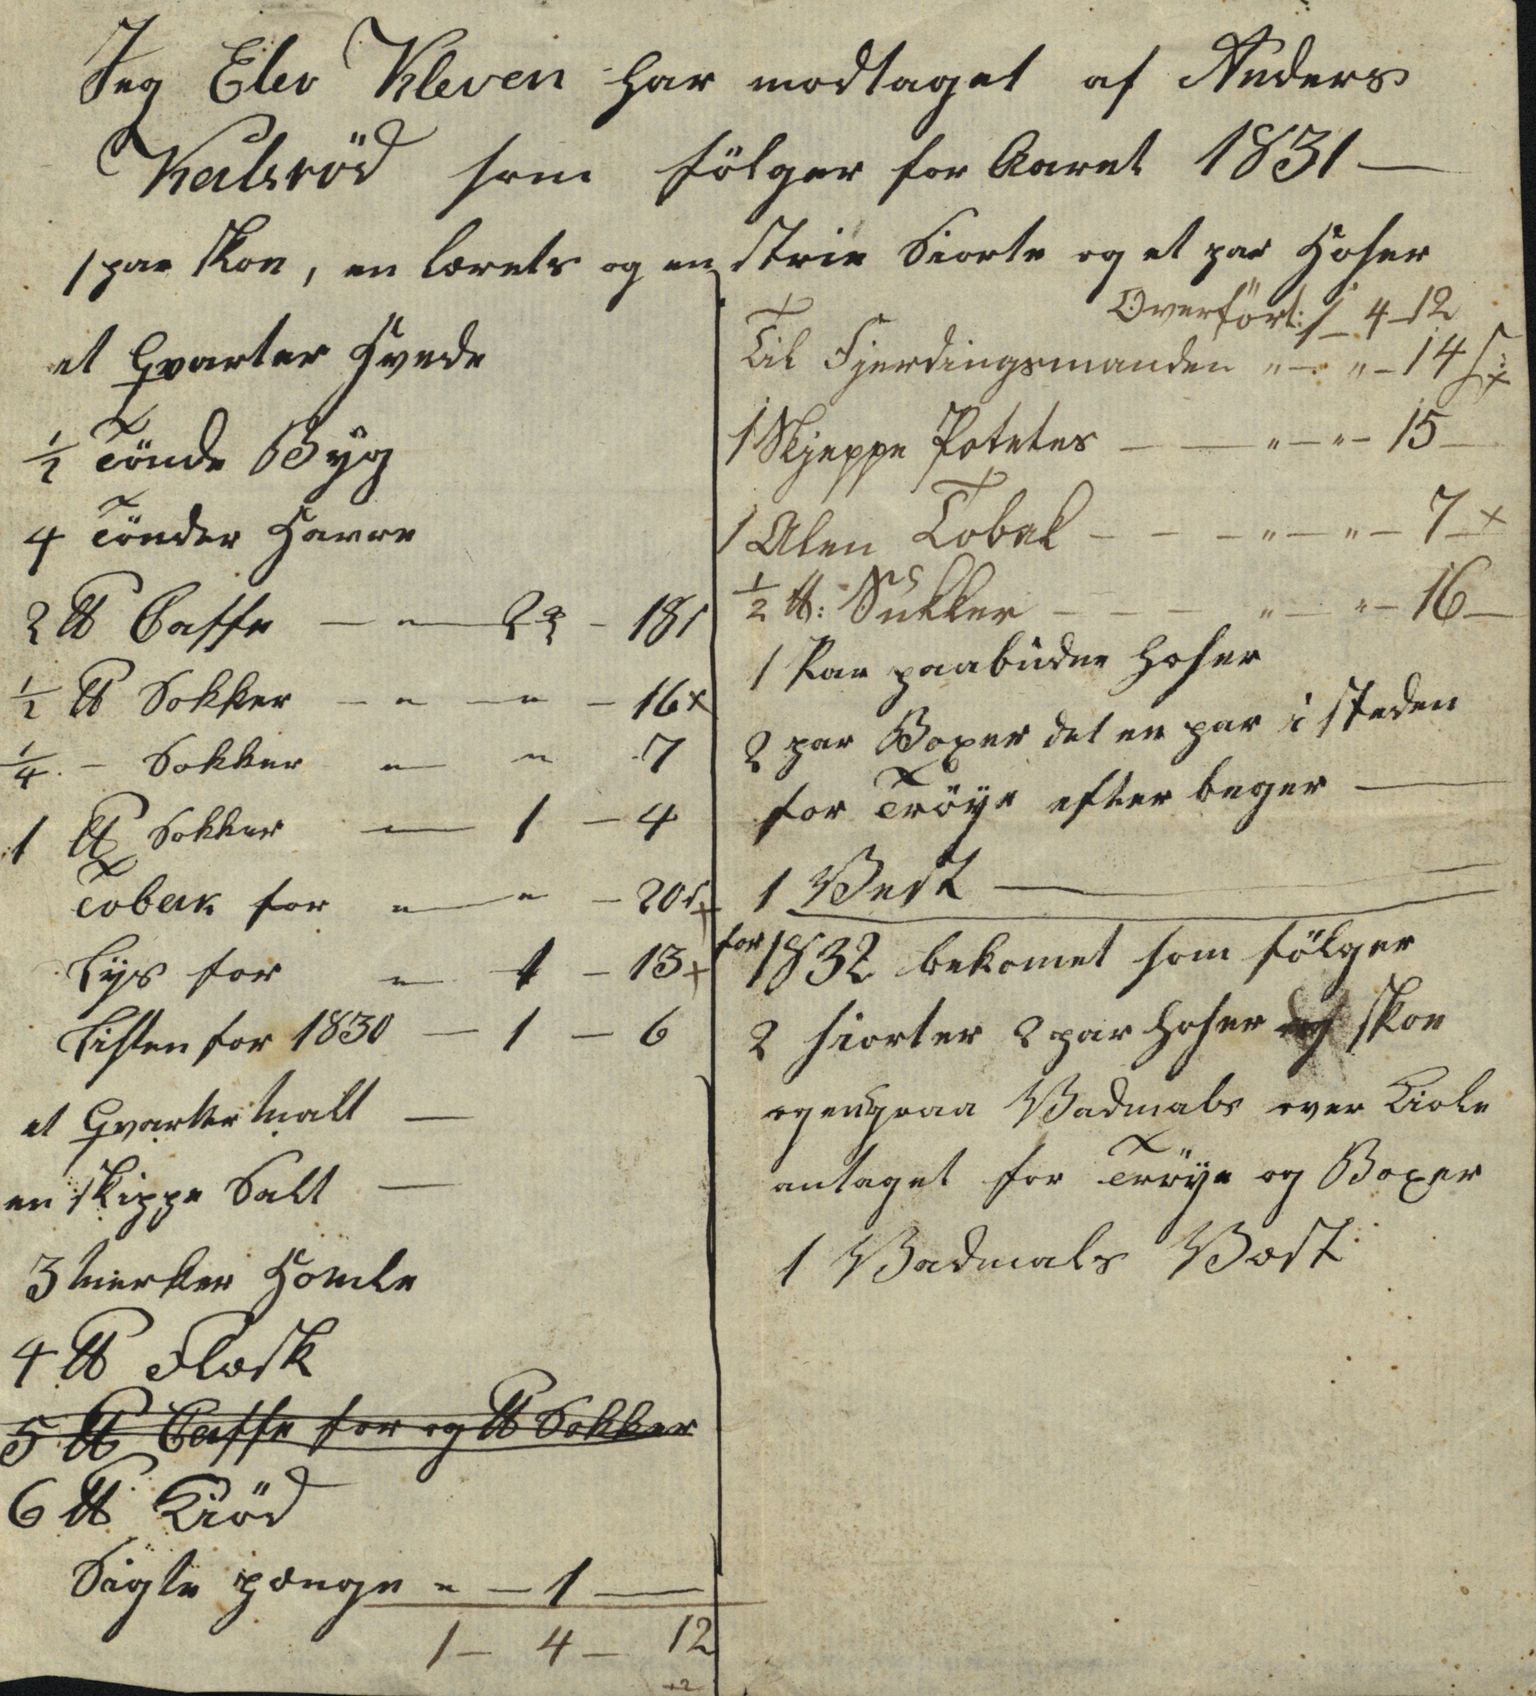 Jeg Elev Kleven har modtaget af Anders
Kalsröd som fölger for Aaret 1831 —
1 par Skoe, en lærets og en Strie Siorte og et par Hoser
et Qvarter Hvede
½ Tönde Byg
4 Tönder Havre
2 ℔ Caffe — " — 2 — 18 s
½ ℔ Sokker — " — " — 16 x
¼ - Sokker " — " 7
1 ℔ Sokker — 1 — 4
Tobak for " — " — 20 s x
Lys for " — 1 — 13 x
Listen for 1830 — 1 — 6
et Qvarter Malt —
en Skippe Salt —
3 Merker Homle
4 ℔ Flæsk
5 ℔ Caffe for og ℔ Sokker
6 ℔ Kiöd
Sigte pænge " — 1 —
1 — 4 — 12
Overfört: 1 — 4 — 12
Til Fjerdingsmanden " — " — 14 s x
1 Skjeppe Potetes — — " — " — 15 —
1 Alen Tobak — — — " — " — 7 x
½ ℔: Sukker — — — " — " — 16 —
1 Par paabudne Hoser
2 par Boxer det en par i steden
for Tröye efter beger —
1 Vest —
for 1832 bekomet som fölger
2 Siorter 2 par Hoser og Skoe
og en graa Vadmals over Kiole
antaget for Tröye og Boxer
1 Vadmals Væst